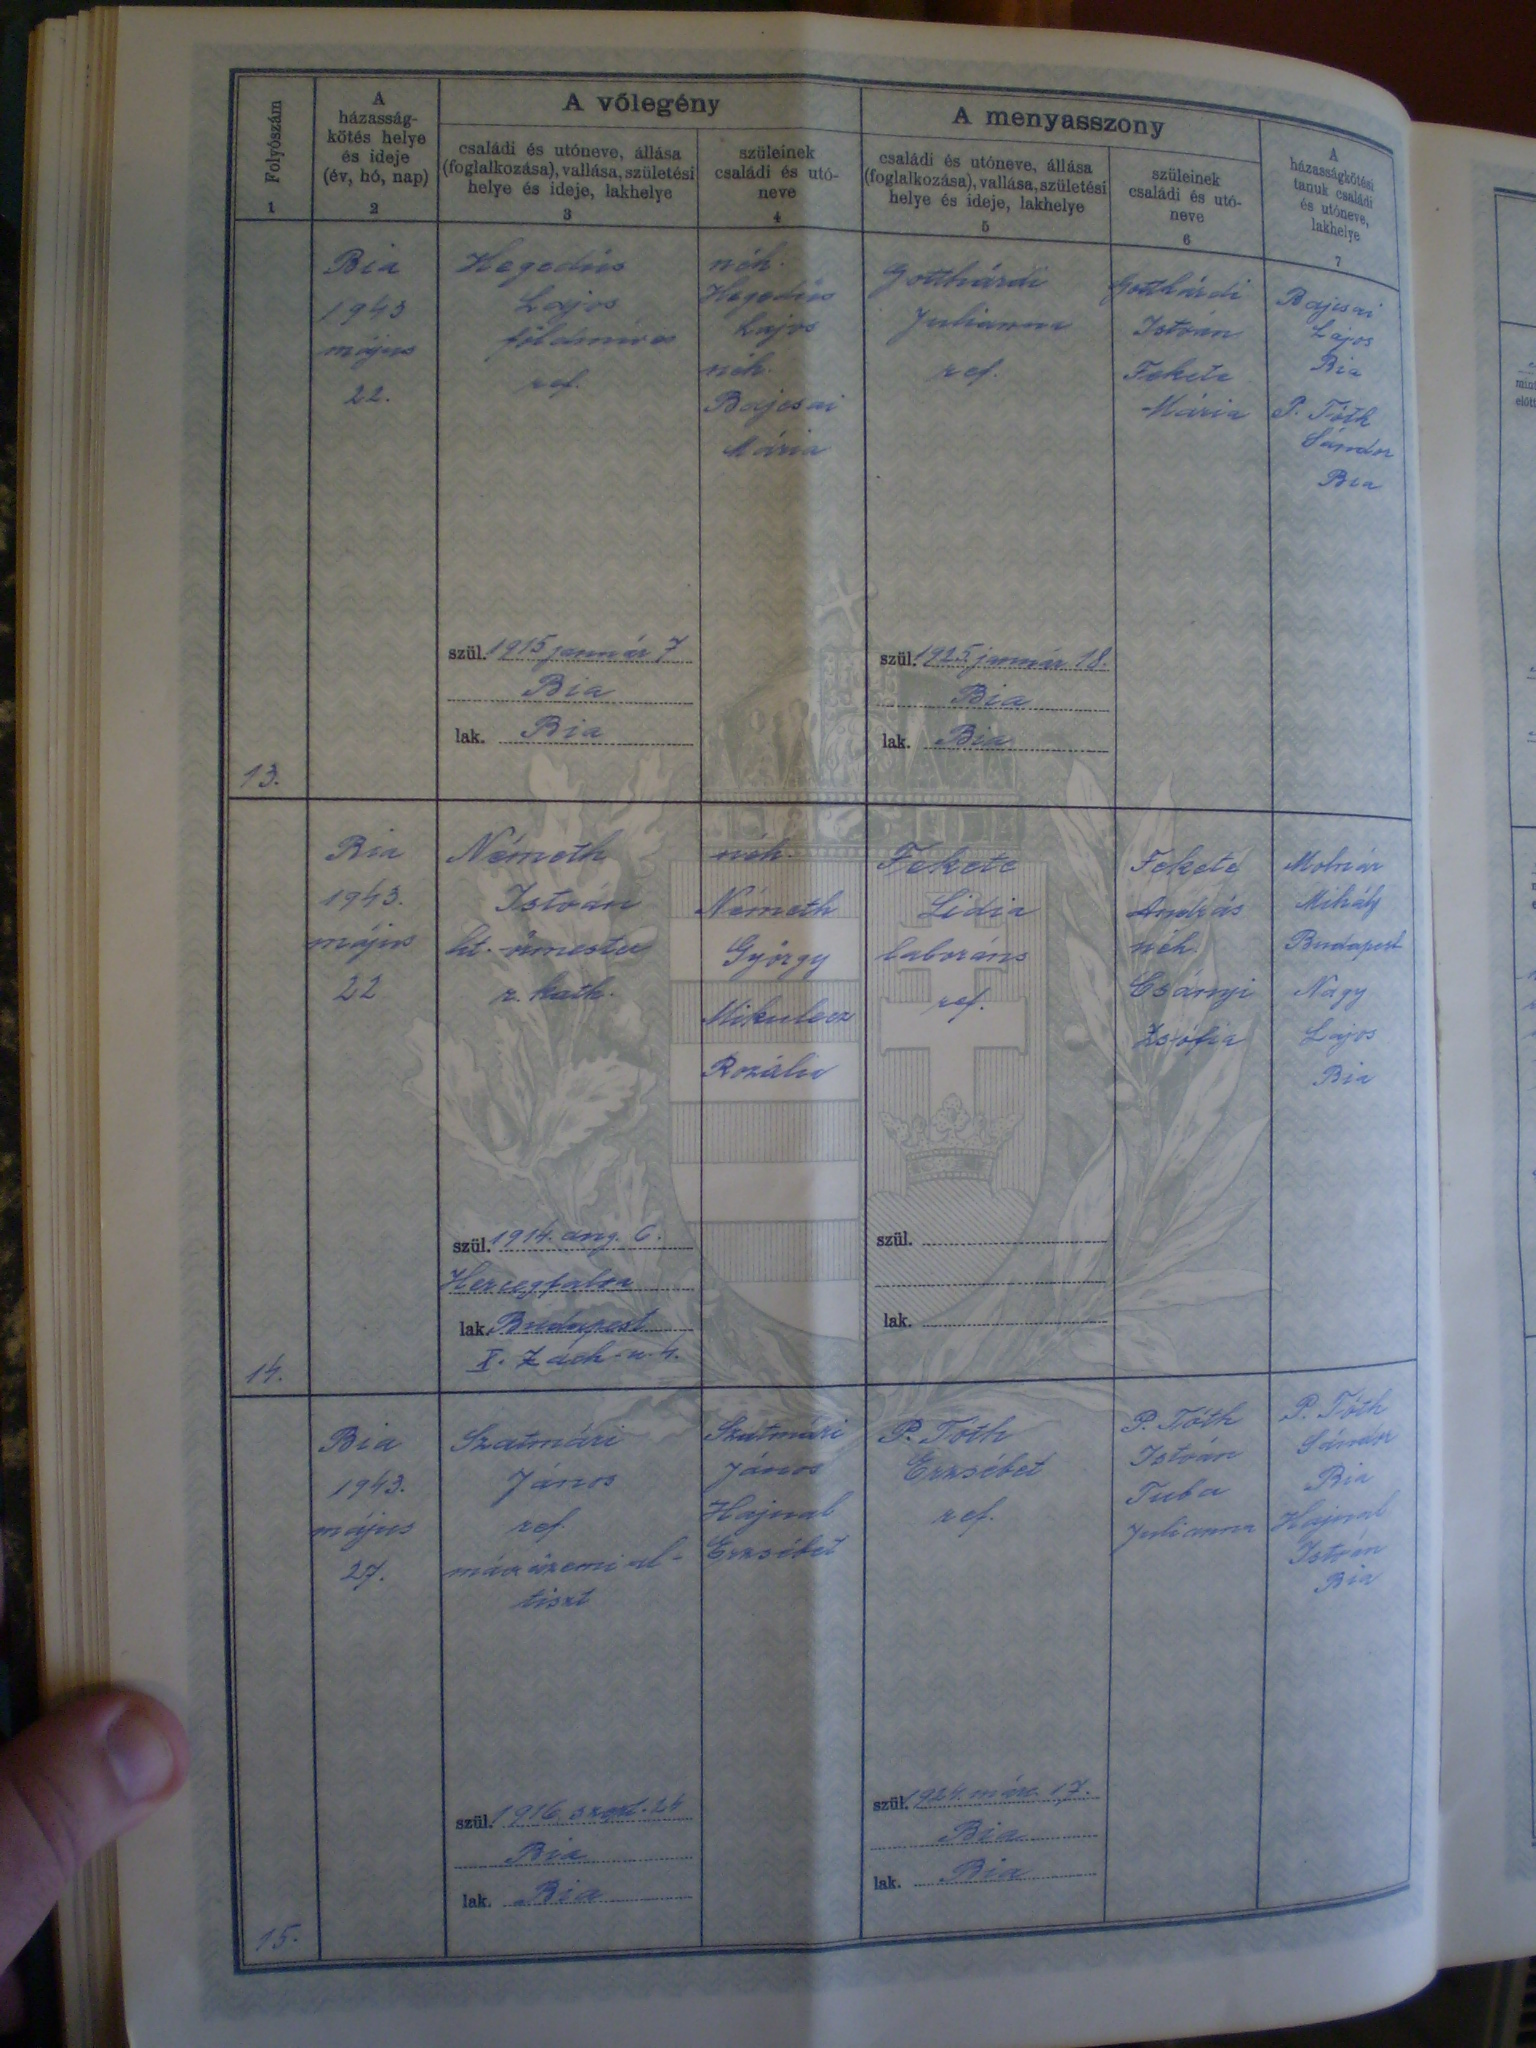 Folyószám
1
A
házasság-
kötés helye
és ideje
(év, hó, nap)
2
A vőlegény
családi és utóneve, állása
(foglalkozása), vallása, születési
helye és ideje, lakhelye
3
szüleinek
családi és utó-
neve
4
A menyasszony
családi és utóneve, állása
(foglalkozása), vallása, születési
helye és ideje, lakhelye
5
szüleinek
családi és utó-
neve
6
A
házasságkötési
tanuk családi
és utóneve,
lakhelye
7
13.
Bia
1943
május
22.
Hegedüs
Lajos
földmives
ref.
szül. 1915 január 7
Bia
lak. Bia
néh.
Hegedüs
Lajos
néh.
Bajcsai
Mária
Gotthárdi
Julianna
ref.
szül. 1925 január 18.
Bia
lak. Bia
Gotthárdi
István
Fekete
Mária
Bajcsai
Lajos
Bia
P. Tóth
Sándor
Bia
14.
Bia
1943.
május
22
Németh
István
őrmester
r. kath.
szül. 1914. aug. 6.
Hercegfalva
lak. Budapest
X. Zách u. 4.
néh.
Németh
György
Mikulecz
Rozália
Fekete
Lidia
laboráns
ref.
szül.
lak.
Fekete
András
néh.
Csányi
Zsófia
Molnár
Mihály
Budapest
Nagy
Lajos
Bia
15.
Bia
1943.
május
27.
Szatmári
János
ref.
máv üzemi al-
tiszt
szül. 1916 szept. 24
Bia
lak. Bia
Szatmári
János
Hajnal
Erzsébet
P. Tóth
Erzsébet
ref.
szül. 1924. márc. 17.
Bia
lak. Bia
P. Tóth
István
Tuba
Julianna
P. Tóth
Sándor
Bia
Hajnal
István
Bia